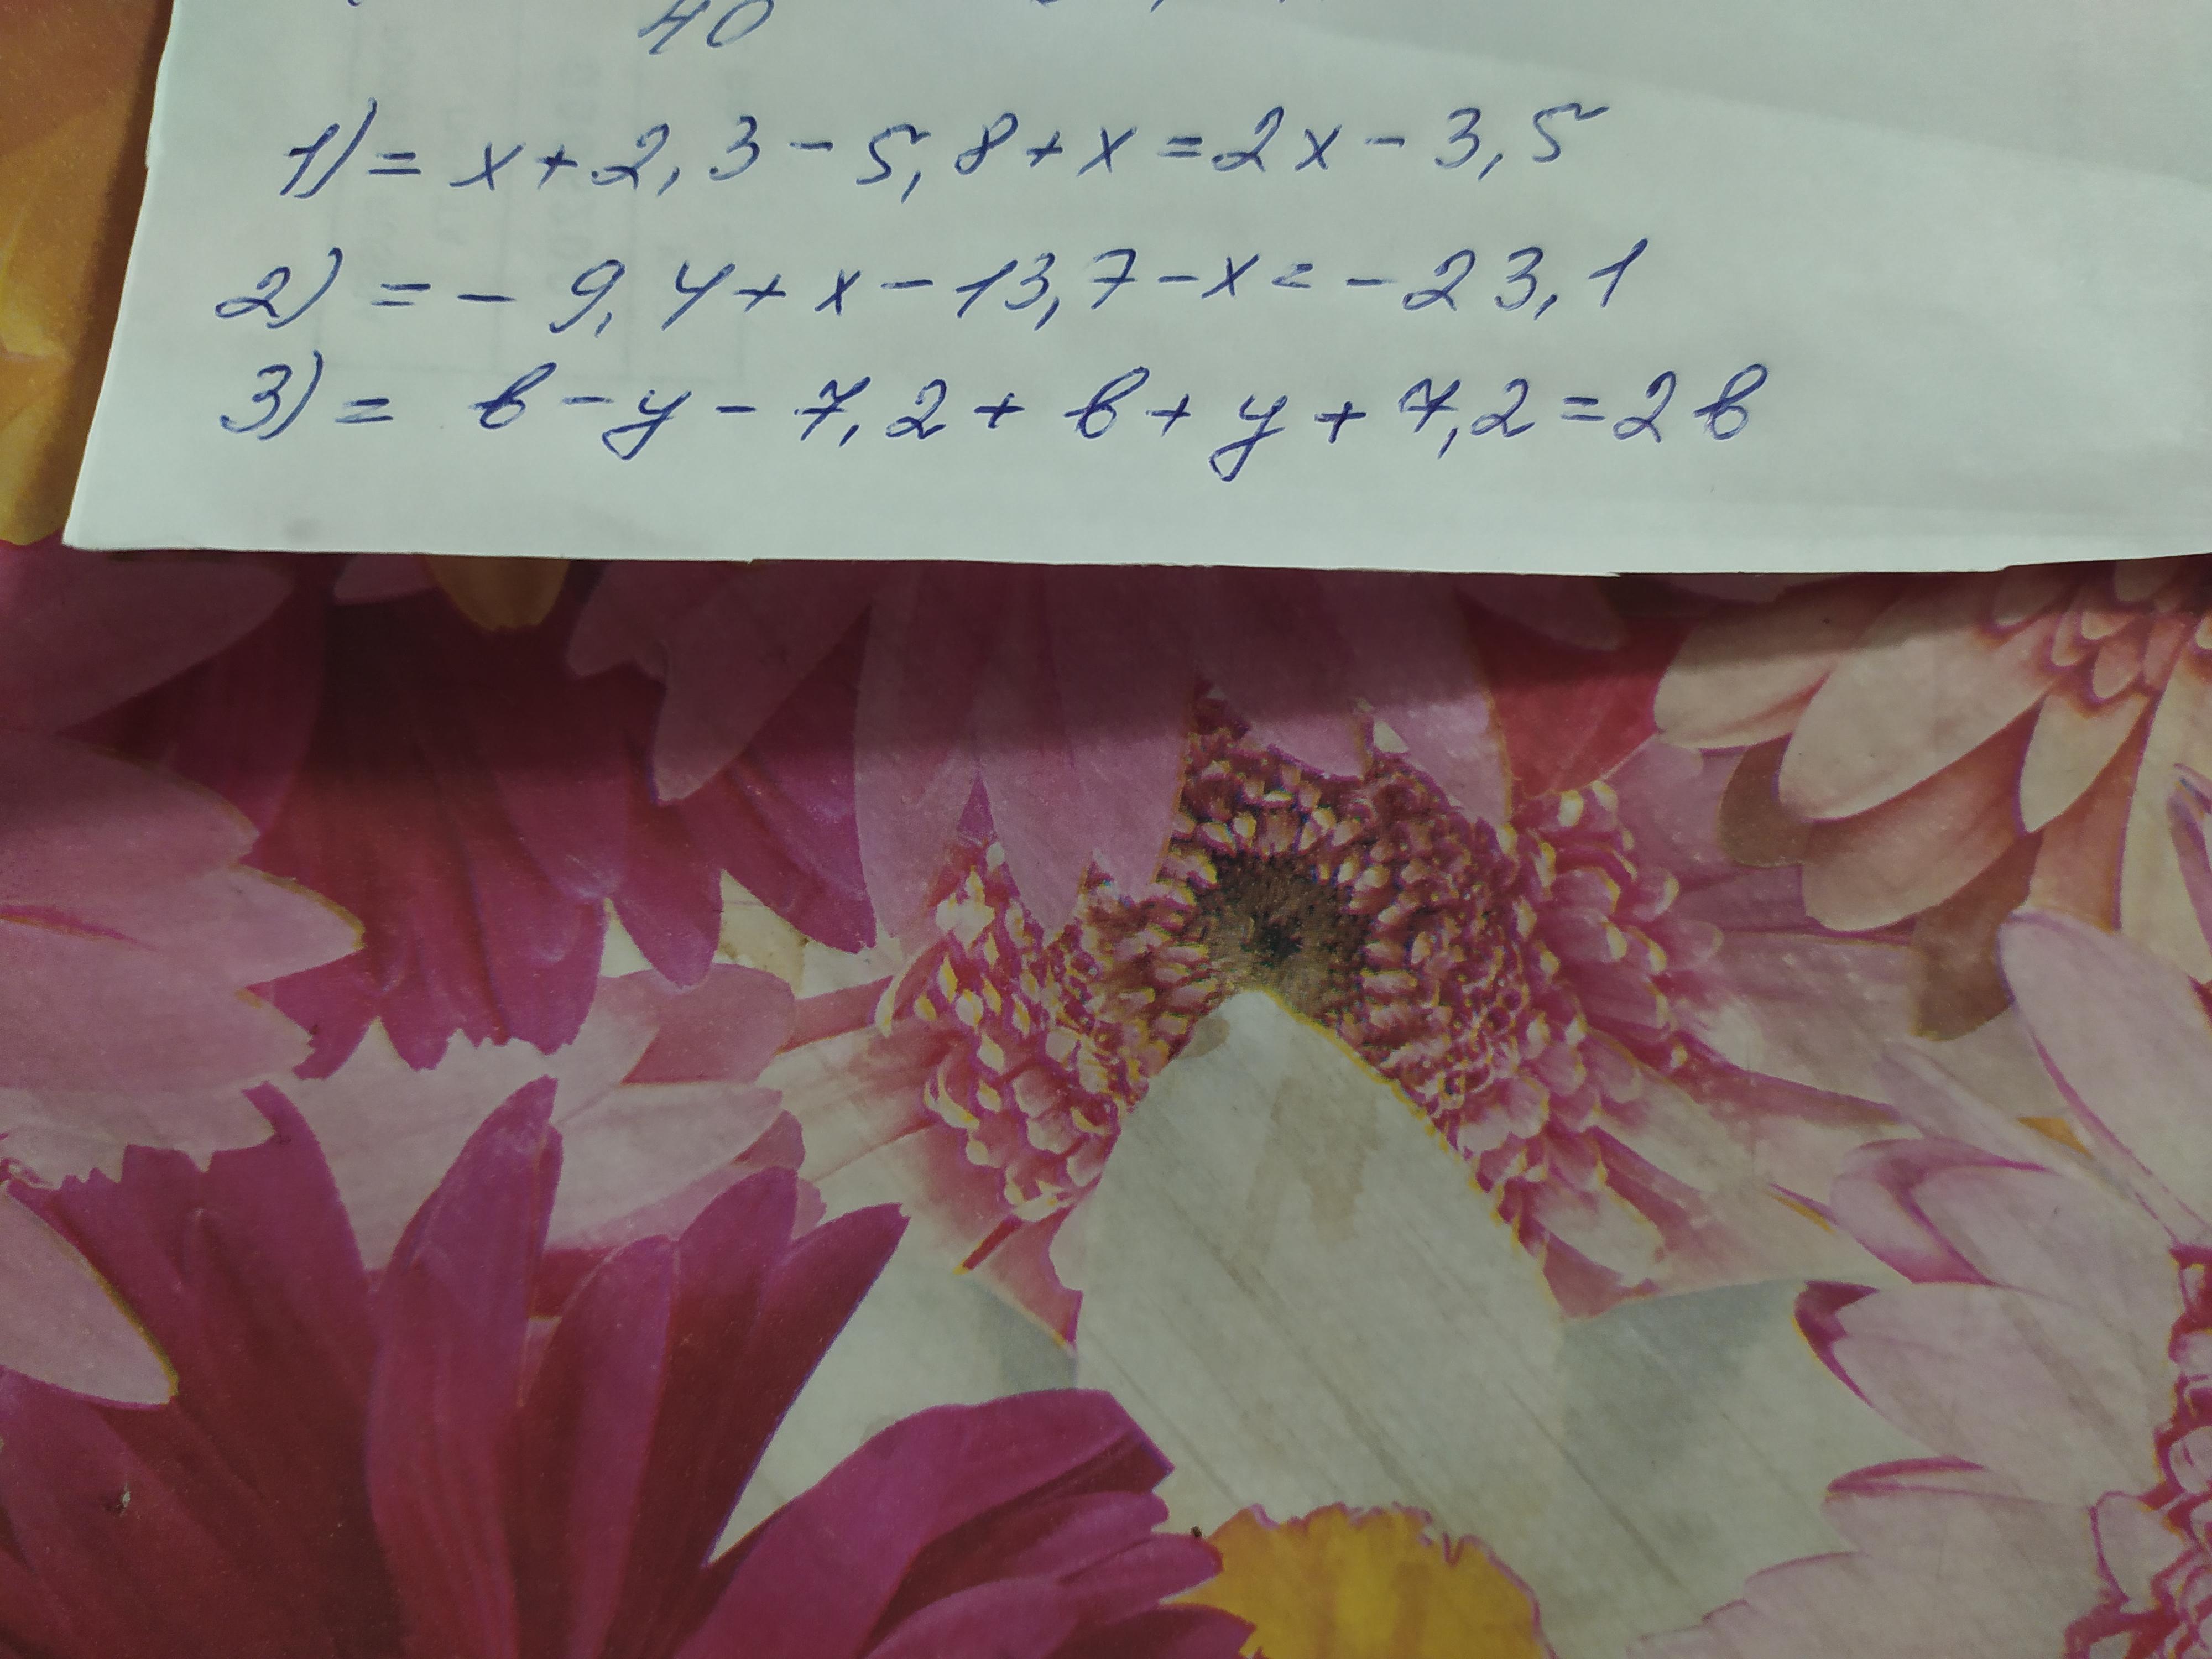 40
1) = x + 2,3 - 5,8 + x = 2x - 3,5
2) = - 9,4 + x - 13,7 - x = - 23,1
3) = b - y - 7,2 + b + y + 7,2 = 2b